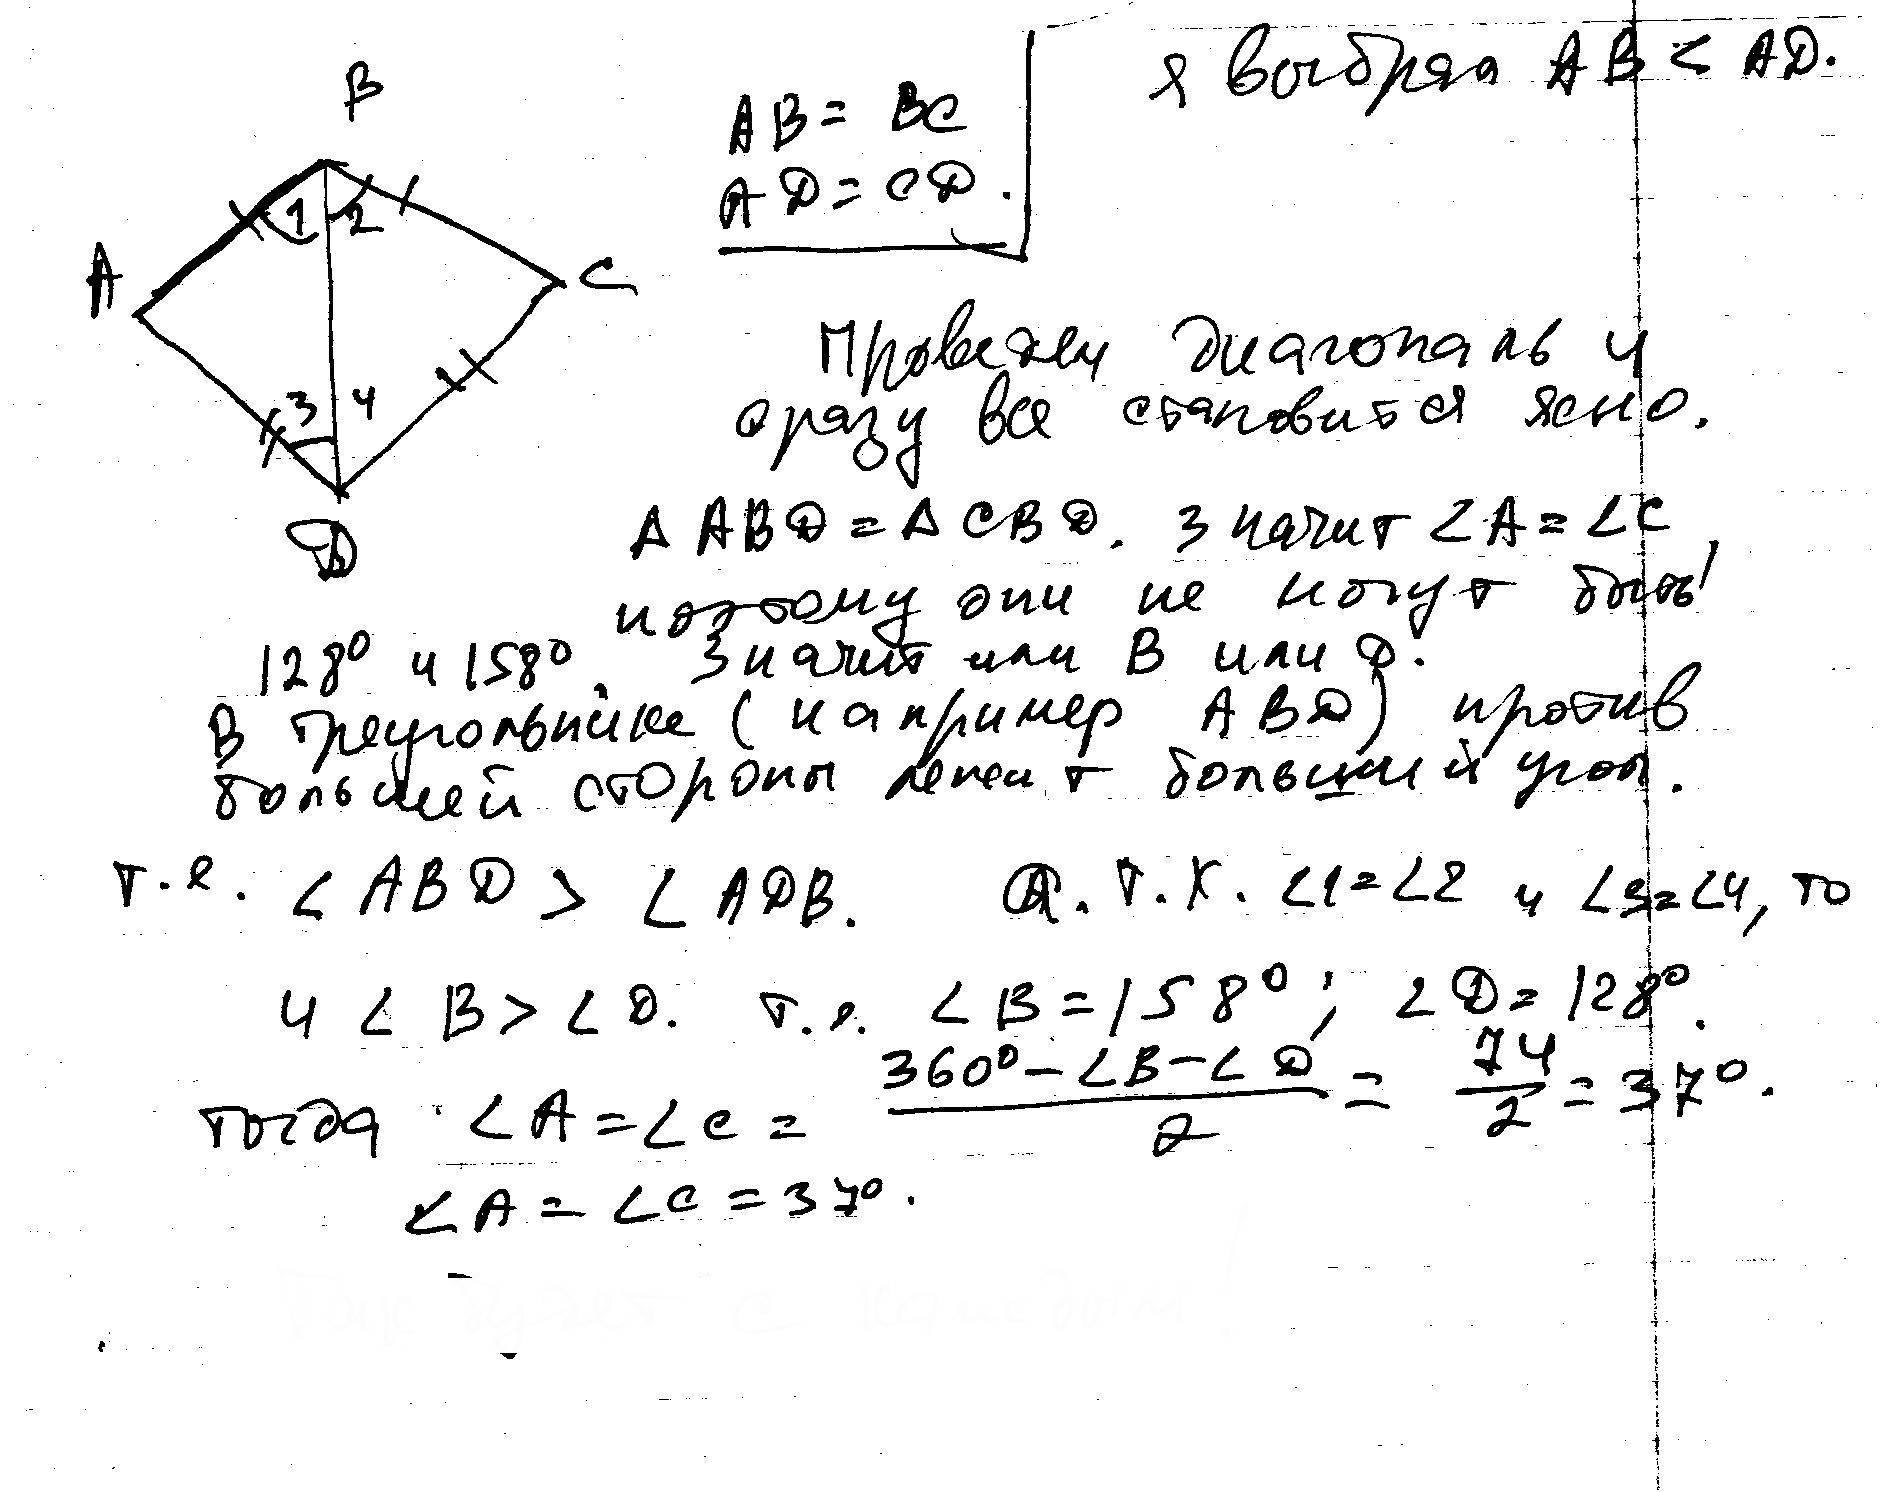 B
A
C
D
1 2
3 4
AB = BC
AD = CD.
я выбрал AB < AD.
Проведем диагональ и
сразу все становится ясно.
Δ ABD = Δ CBD. Значит ∠A = ∠C,
поэтому они не могут быть
128° и 158°. Значит или B или D.
В треугольнике (например ABD) против
большей стороны лежит больший угол.
т.е. ∠ABD > ∠ADB. А. т.к. ∠1=∠2 и ∠3=∠4, то
и ∠B > ∠D. т.е. ∠B = 158°; ∠D = 128°.
тогда ∠A = ∠C = (360° - ∠B - ∠D)/2 = 74/2 = 37°.
∠A = ∠C = 37°.